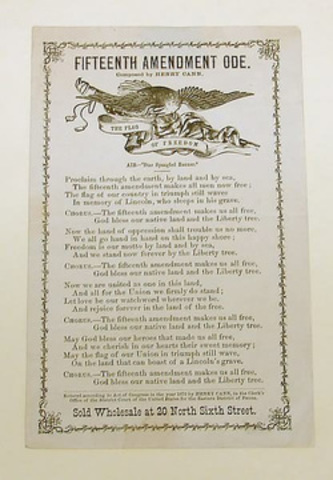 FIFTEENTH AMENDMENT ODE.
Composed by HENRY CANN.
THE FLAG
OF FREEDOM
AIR—"Star Spangled Banner."
Proclaim through the earth, by land and by sea,
The fifteenth amendment makes all men now free;
The flag of our country in triumph still waves
In memory of Lincoln, who sleeps in his grave.
CHORUS.—The fifteenth amendment makes us all free,
God bless our native land and the Liberty tree.
Now the hand of oppression shall trouble us no more,
We all go hand in hand on this happy shore;
Freedom is our motto by land and by sea,
And we stand now forever by the Liberty tree.
CHORUS.—The fifteenth amendment makes us all free,
God bless our native land and the Liberty tree.
Now we are united as one in this land,
And all for the Union we firmly do stand;
Let love be our watchword wherever we be,
And rejoice forever in the land of the free.
CHORUS.—The fifteenth amendment makes us all free,
God bless our native land and the Liberty tree.
May God bless our heroes that made us all free,
And we cherish in our hearts their sweet memory;
May the flag of our Union in triumph still wave,
On the land that can boast of a Lincoln's grave.
CHORUS.—The fifteenth amendment makes us all free,
God bless our native land and the Liberty tree.
Entered according to Act of Congress in the year 1870 by HENRY CANN, in the Clerk's
Office of the District Court of the United States for the Eastern District of Penna.
Sold Wholesale at 20 North Sixth Street.